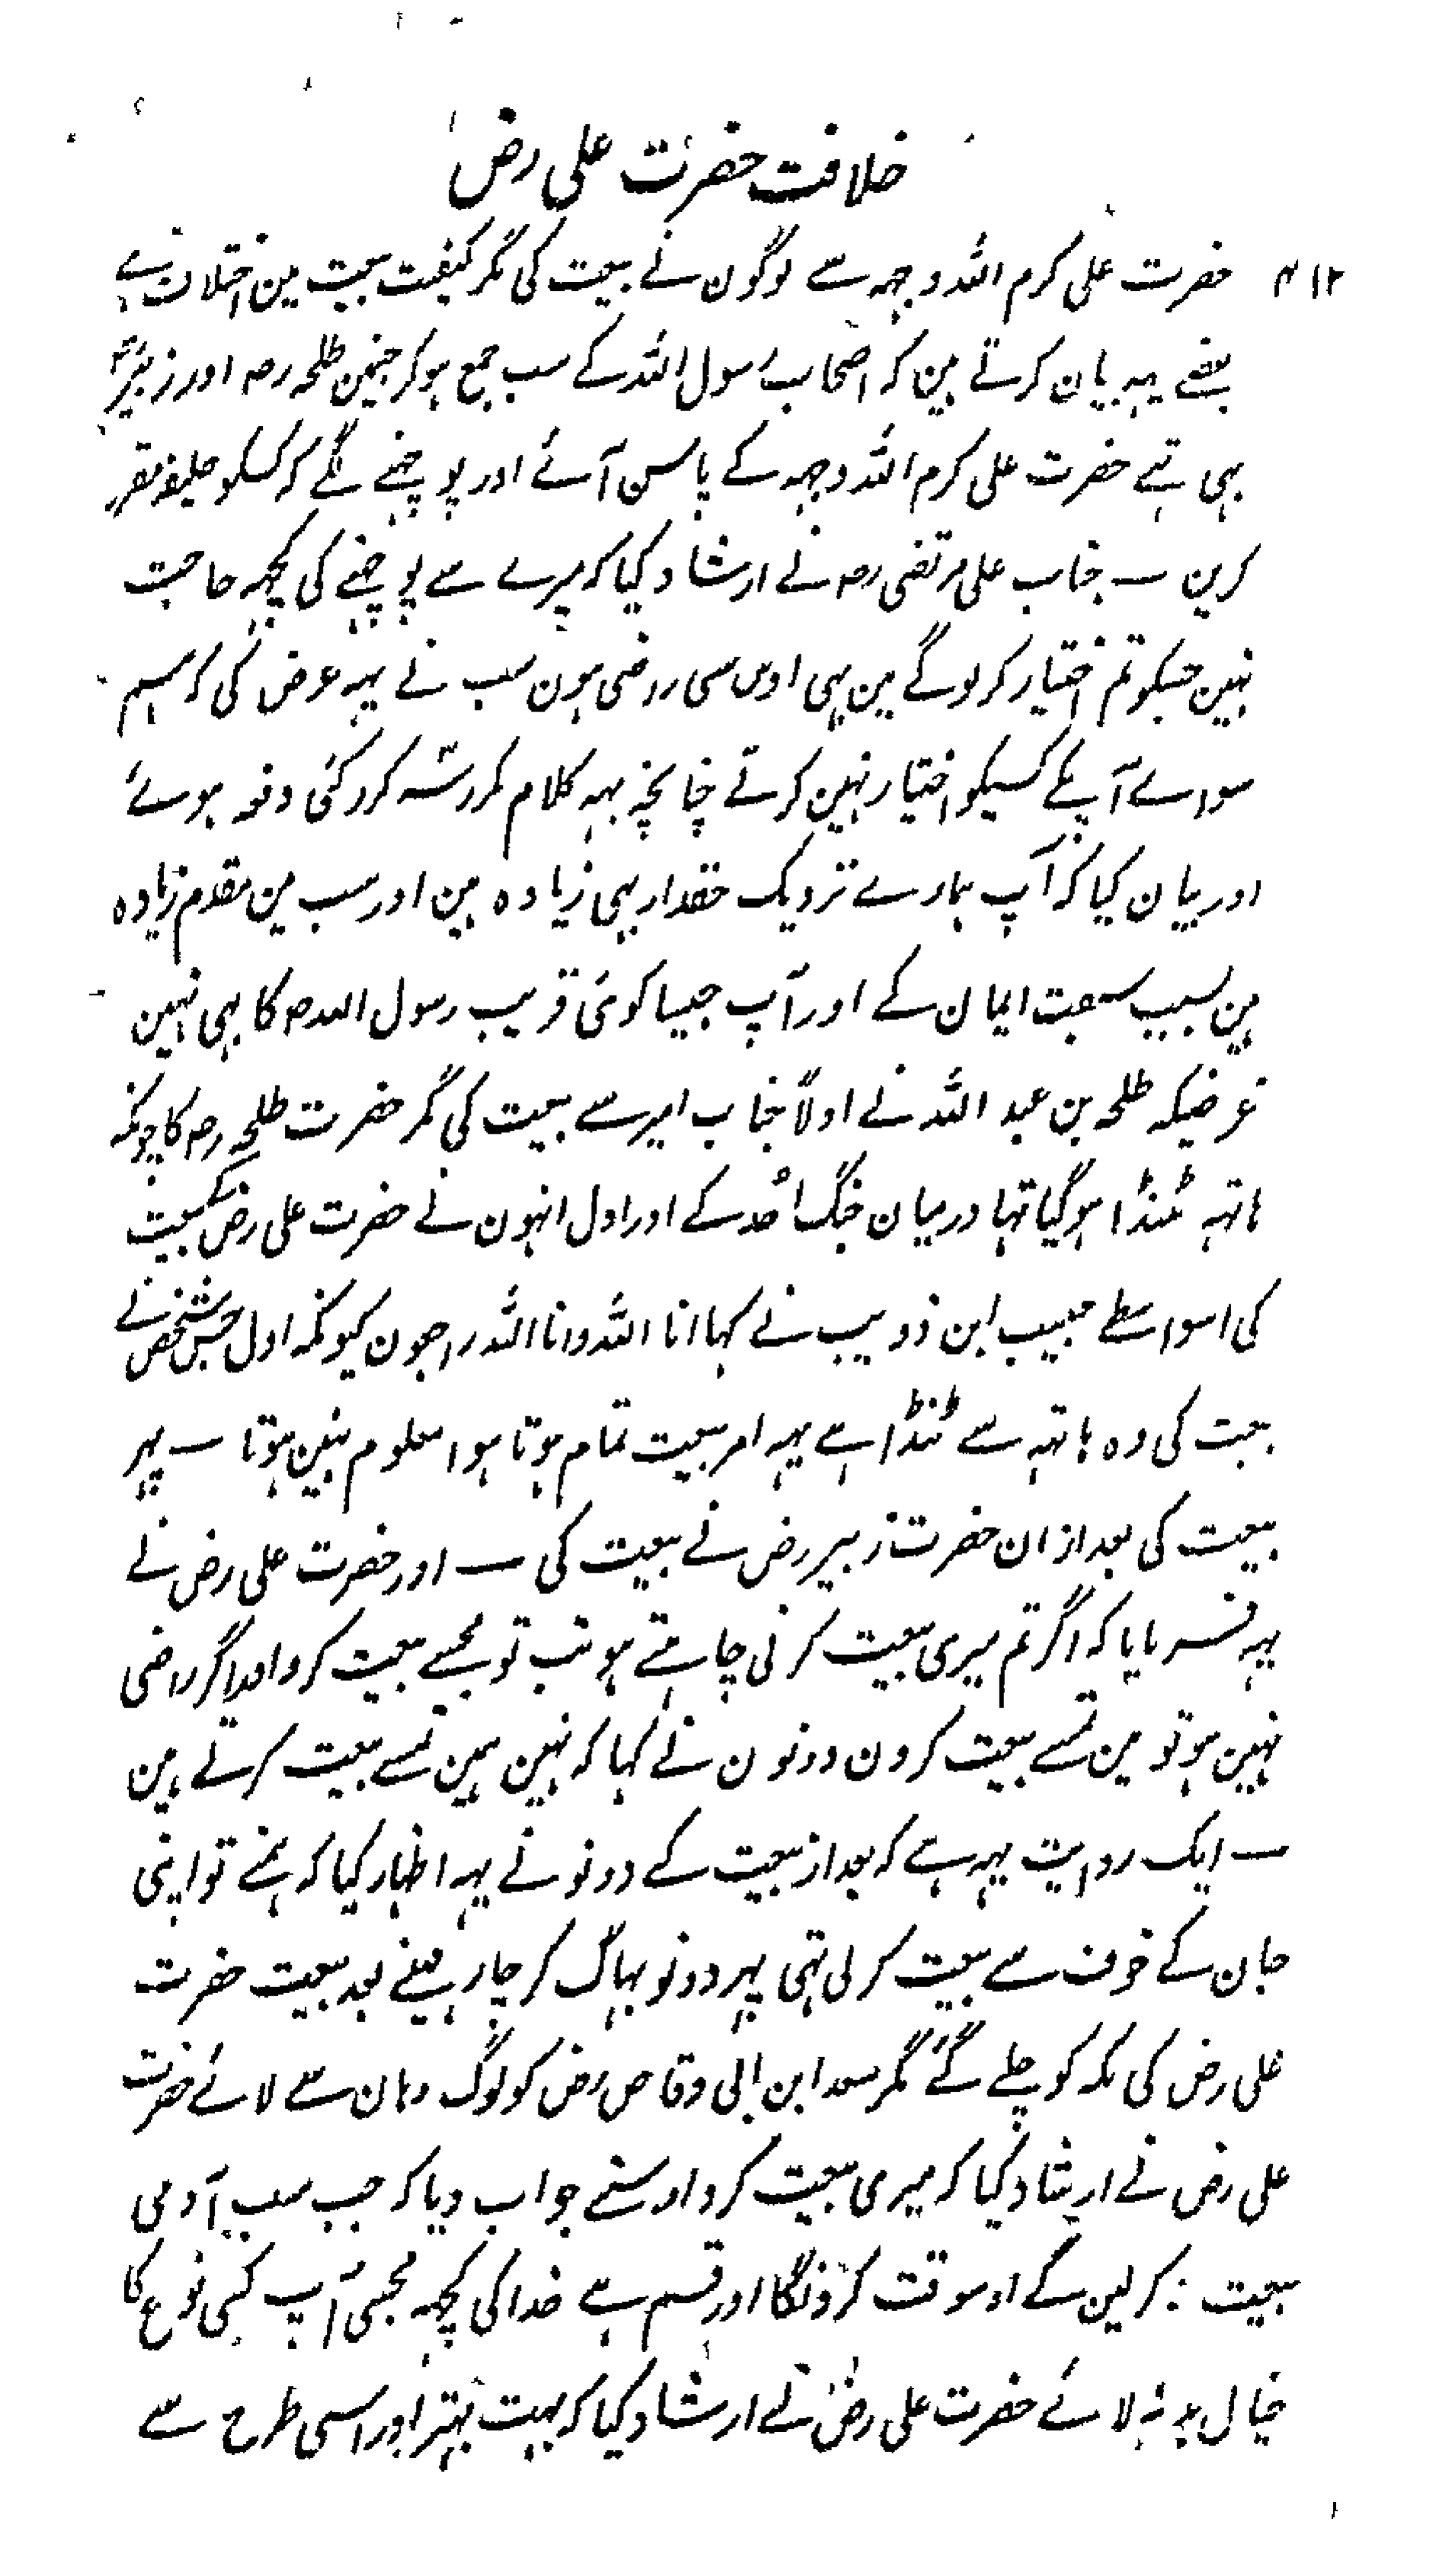 خلافت حضرت علی رض
۴۱۲ حضرت علی کرم اللہ وجہہ سے لوگون نے بیعت کی مگر کیفیت بیعت مین اختلاف ہے
بعضے یہہ بیان کرتے ہین کہ اصحاب رسول اللہ کے سب جمع ہوکر جنمین طلحہ رض اور زبیر رض
بہی تہے حضرت علی کرم اللہ وجہہ کے پاس آئے اور پوچہنے لگے کہ کسکو خلیفہ مقرر
کرین ــ جناب علی مرتضی رض نے ارشاد کیا کہ میرے سے پوچہنے کی کچہہ حاجت
نہین جسکو تم اختیار کر لوگے مین بہی اوس سی راضی ہون سب نے یہہ عرض کی کہ ہم
سوائے آپکے کسیکو اختیار نہین کرتے چنانچہ یہہ کلام مکرر سہ کرر کئی دفعہ ہوئے
اور بیان کیا کہ آپ ہمارے نزدیک حقدار بہی زیادہ ہین اور سب مین مقدم زیادہ
ہین بسبب سبقت ایمان کے اور آپ جیسا کوئی قریب رسول اللہ ص کا بہی نہین
غرضیکہ طلحہ بن عبد اللہ نے اولاً جناب امیر سے بیعت کی مگر حضرت طلحہ رض کا چونکہ
ہاتہہ ٹنڈا ہو گیا تہا درمیان جنگ اُحد کے اور اول انہون نے حضرت علی رض کے بیعت
کی اسواسطے حبیب ابن ذویب نے کہا انا اللہ وانا اللہ راجعون کیونکہ اول جس شخص نے
بیعت کی وہ ہاتہہ سے ٹنڈا ہے یہہ امر بیعت تمام ہوتا ہوا معلوم نہین ہوتا ــ پہر
بیعت کی بعد ازان حضرت زبیر رض نے بیعت کی ــ اور حضرت علی رض نے
یہہ فرمایا کہ اگر تم میری بیعت کرنی چاہتے ہو تب تو مجھسے بیعت کرو اور اگر راضی
نہین ہو تو مین تمسے بیعت کرون دونون نے کہا کہ نہین ہمین تمسے بیعت کرتے ہین
ــ ایک روایت یہہ ہے کہ بعد از بیعت کے دونو نے یہہ اظہار کیا کہ ہمنے تو اپنی
جان کے خوف سے بیعت کر لی تہی پہر دونو بہاگ کر چار مہینے بعد بیعت حضرت
علی رض کی مکہ کو چلے گئے مگر سعد ابن ابی وقاص رض کو لوگ وہان سے لائے حضرت
علی رض نے ارشاد کیا کہ میری بیعت کرو اوسنے جواب دیا کہ جب سب آدمی
بیعت : کر لین گے اوسوقت کرونگا اور قسم ہے خدا کی کچہہ مجہی آپ کسی نوع کا
خیال بد نہ لائے حضرت علی رض نے ارشاد کیا کہ بہت بہتر اور اسی طرح سے